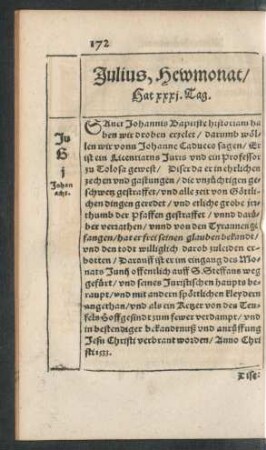 172
Julius, Hewmonat/
Hat xxxj. Tag.
Ju
G
j
Johan
SAnct Johannis Baptiste historiam ha
ben wir droben erzelet / darumb wöl
len wir vonn Johanne Caduceo sagen / Er
ist ein Licentiatus Juris vnd ein Professor
zu Tolosa gewest / Diser da er in ehrlichen
zechen vnd gastungen / die vnzüchtigen ge
schwetz gestraffet / vnd alle zeit von Göttli-
chen dingen geredet / vnd etliche grobe jr-
thumb der Pfaffen gestraffet / vnnd darü-
ber verrathen / vnnd von den Tyrannen ge
fangen / hat er frei seinen glauben bekandt /
vnd den todt williglich darob zuleiden er-
botten / Darauff ist er im eingang des Mo-
nats Junij offentlich auff S. Steffans weg
gefürt / vnd seines Juristischen haupts be-
raupt / vnd mit andern spöttlichen kleydern
angethan / vnd als ein Ketzer von des Teu-
fels Hoffgesindt zum fewer verdampt / vnd
in bestendiger bekandtnuß vnd anrüffung
Jesu Christi verbrant worden / Anno Chri
sti
Dise: